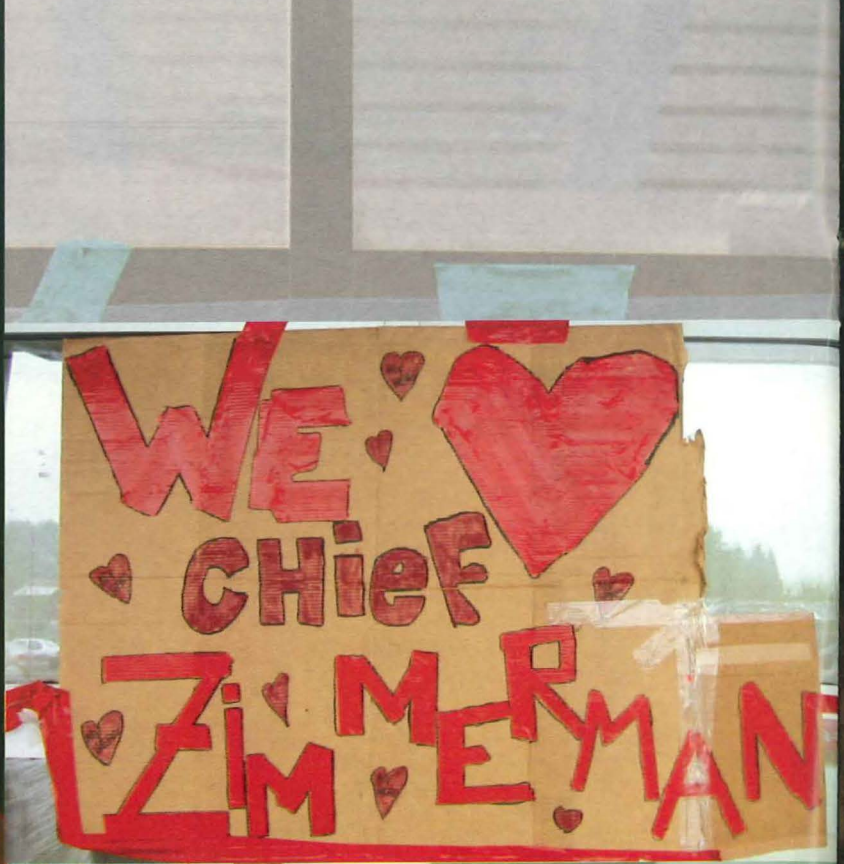 WE ♥
CHieF
ZiMMERMAN